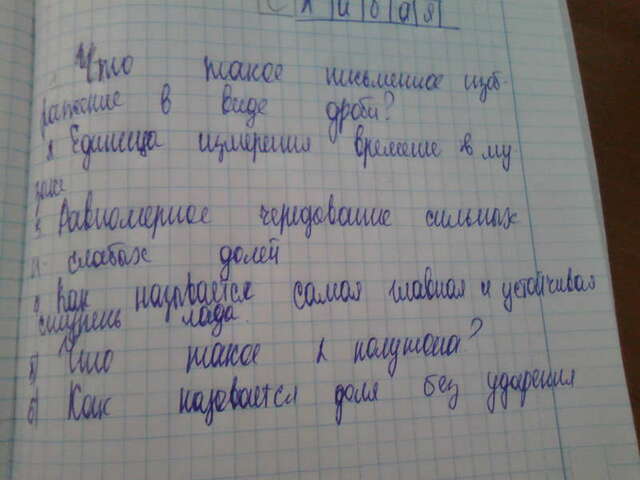 с л а б а я
Что такое письменное изоб-
ражение в виде дроби?
2 Единица измерения времене в му
зыке
3 Равномерное чередование сильнах
и слабах долей
4 Как назавается самая главная и устойчивая
ступень лада
5) Что такое 2 полутона?
6) Как назевается доля без ударения